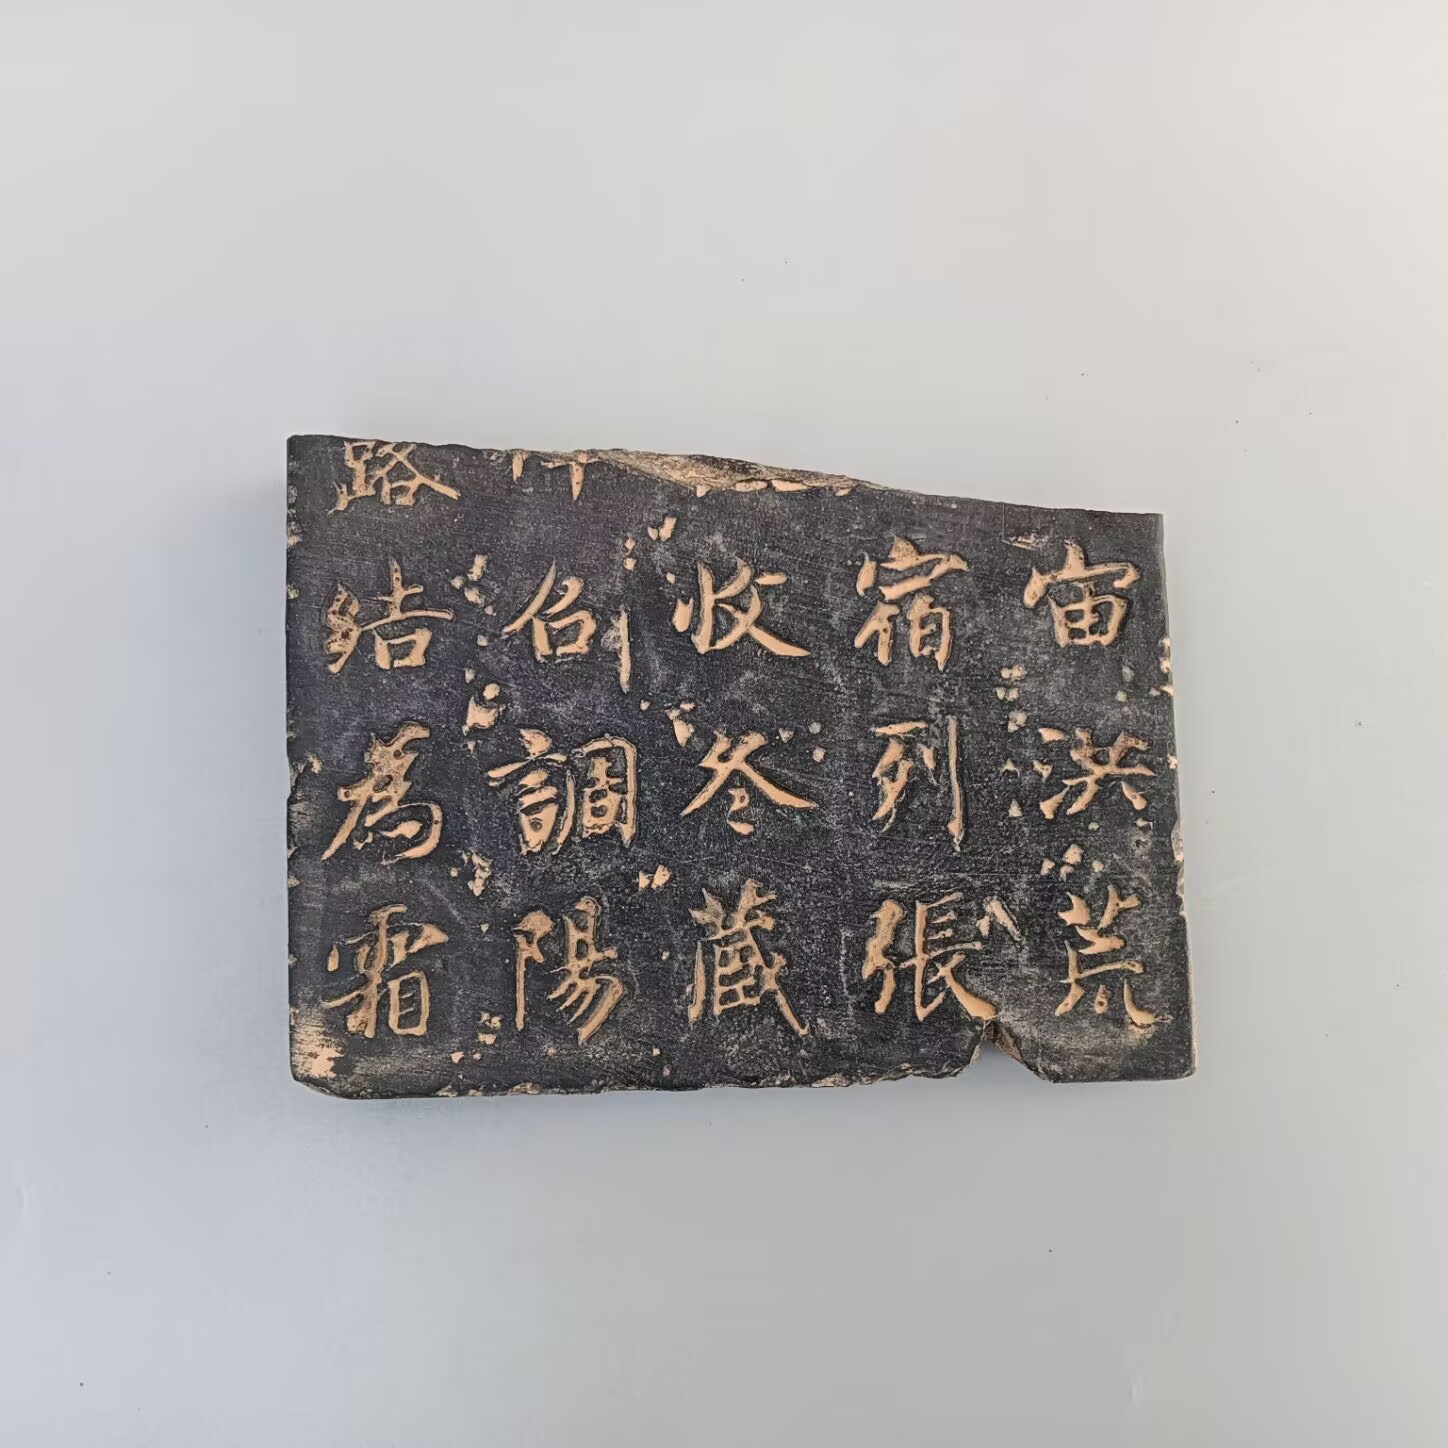 宙洪荒
宿列張
收冬藏
召調陽
露結為霜